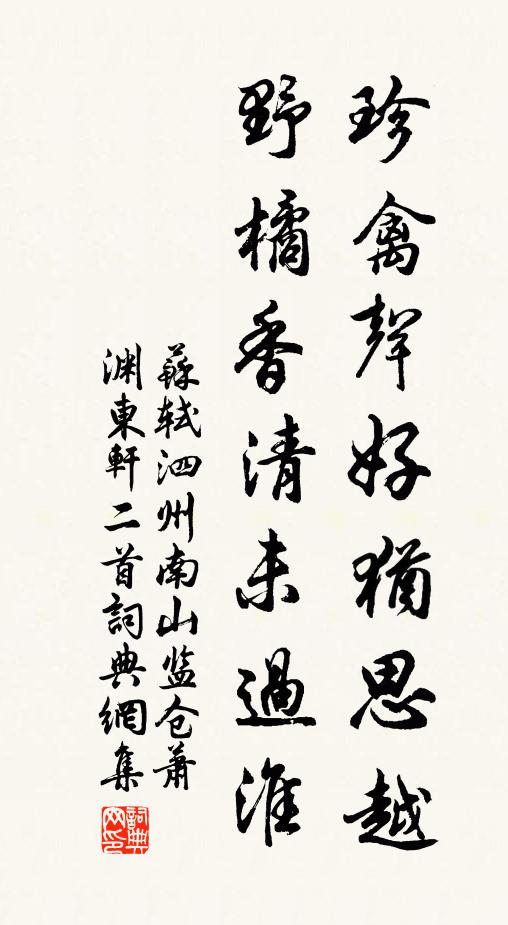 珍禽聲好猶思越
野橘香清未過淮
蘇軾泗州南山监仓蕭
渊東軒二首詞典網集
詞典网印